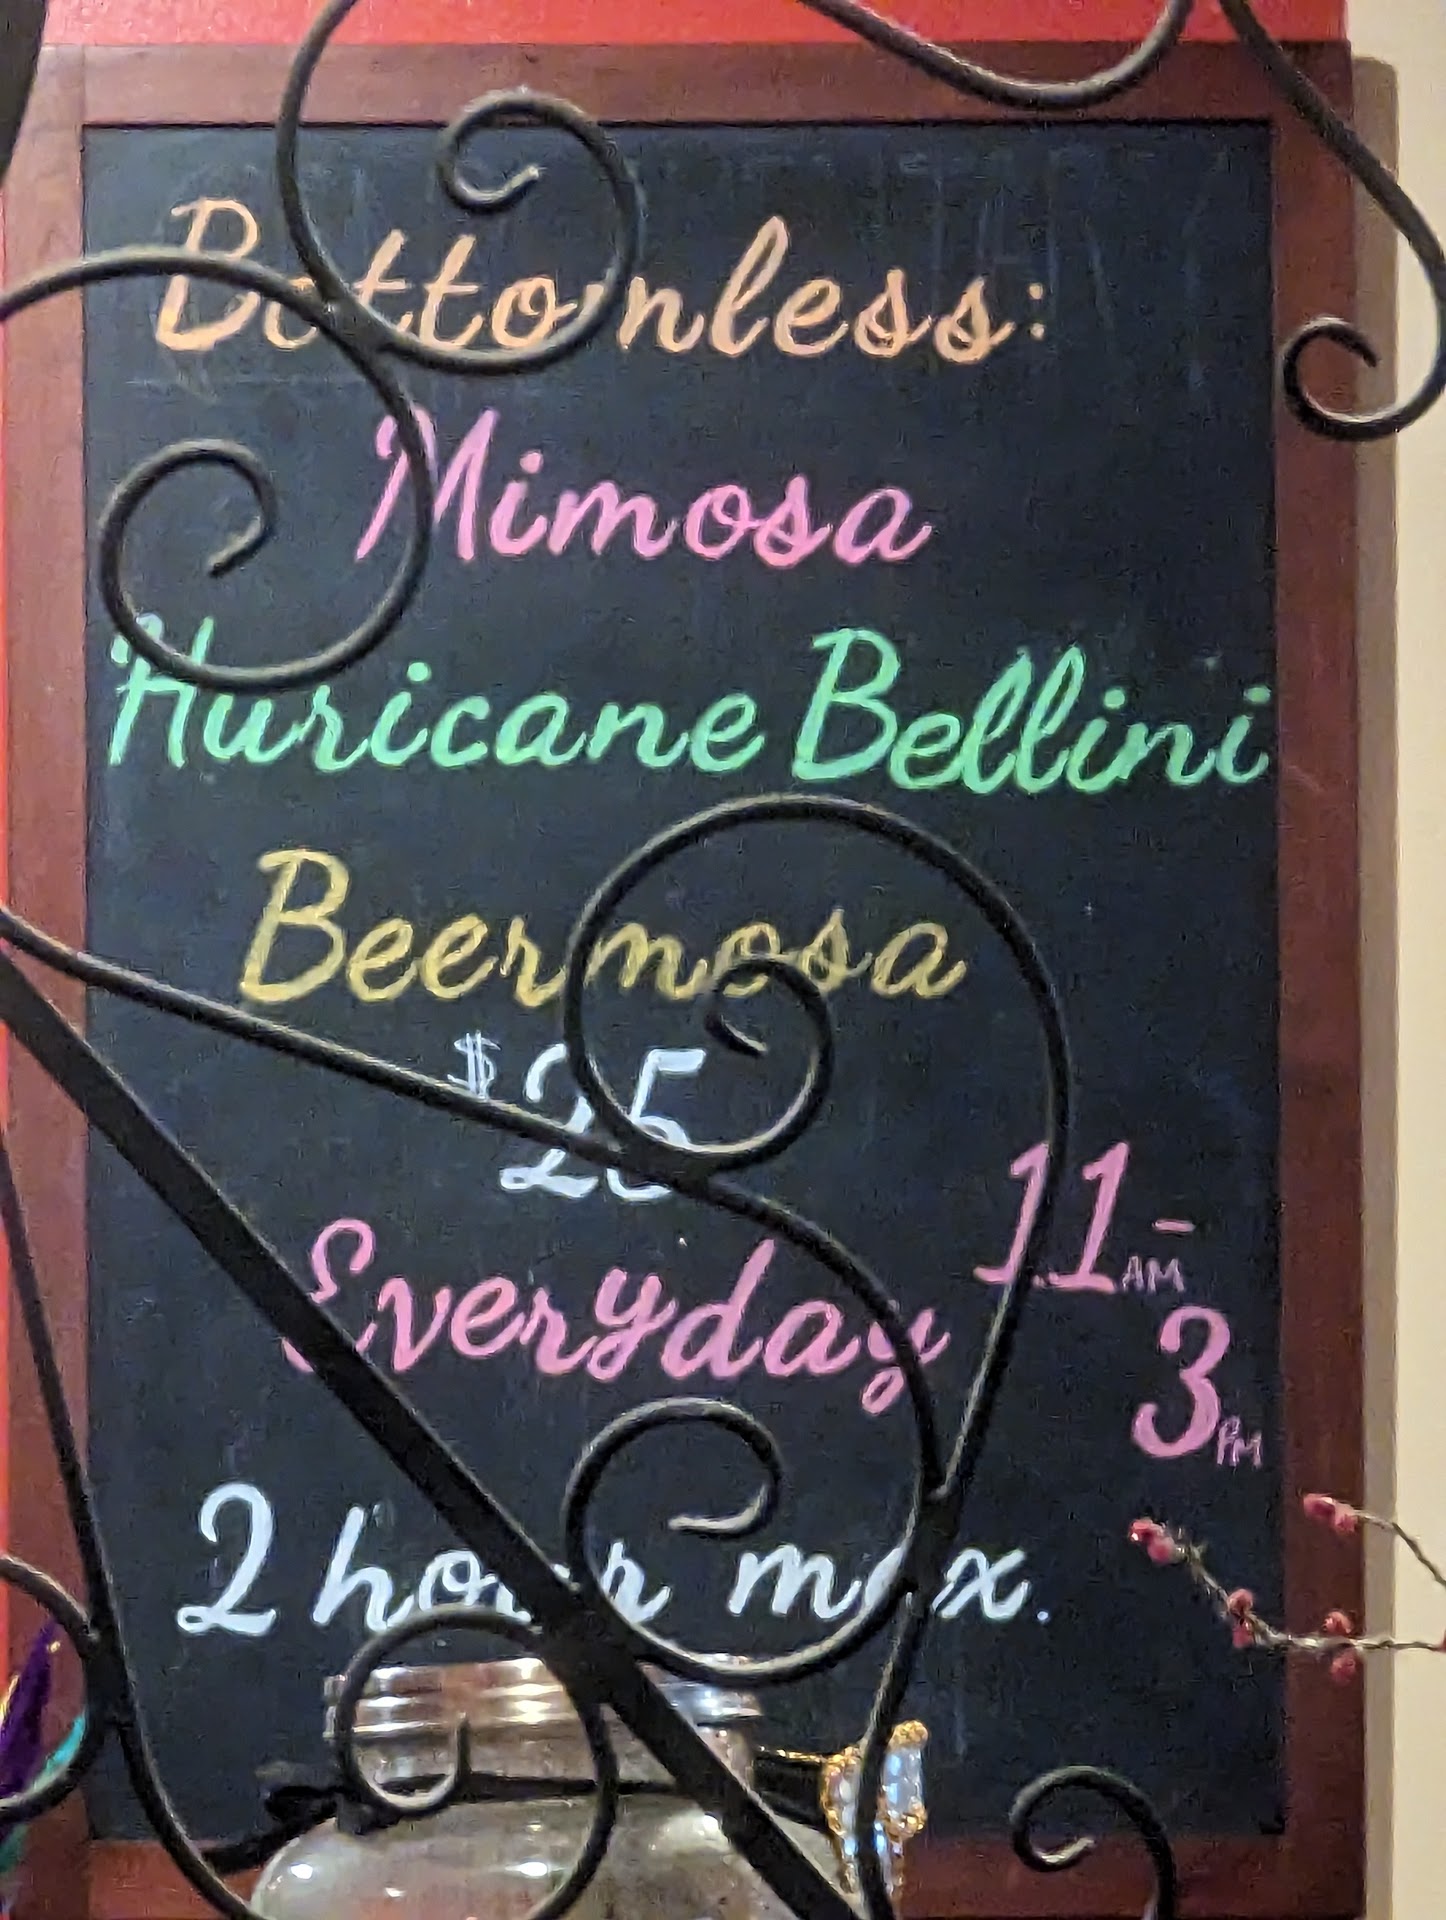 Bottomless:
Mimosa
Huricane Bellini
Beermosa
$25
Everyday 11AM-
3PM
2 hour max.